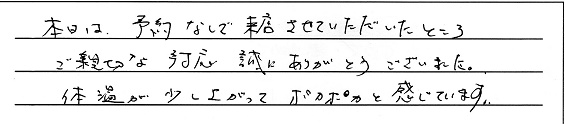 本日は、予約なしで来店させていただいたところ
ご親切な対応誠にありがとうございました。
体温が少し上がってポカポカと感じています。